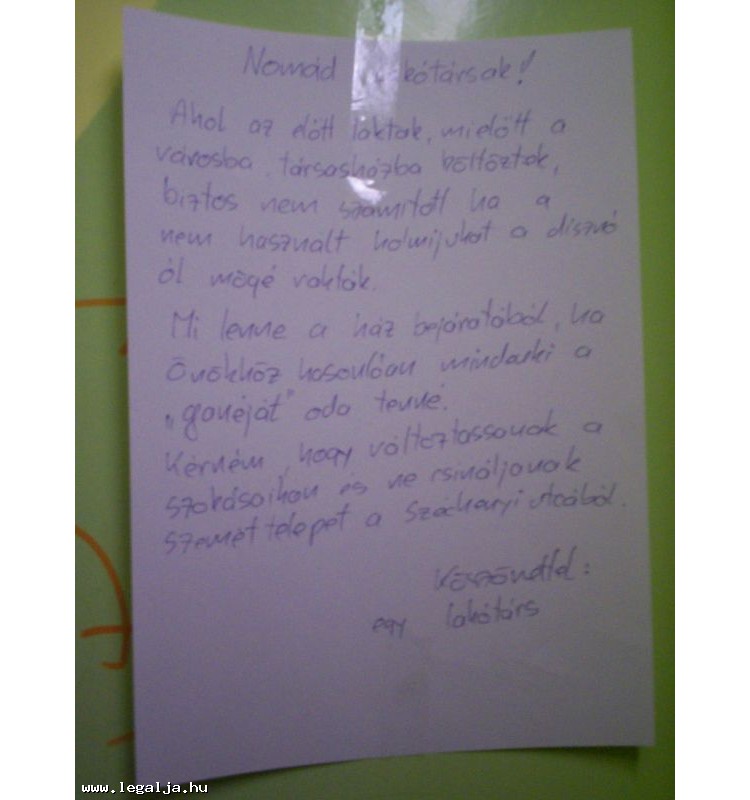 Nomád lakótársak!
Ahol az előtt laktak, mielőtt a
városba, társasházba költöztek,
biztos nem számított ha a
nem használt holmijukat a disznó
ól mögé rakták.
Mi lenne a ház bejáratából, ha
Önökhöz hasonlóan mindenki a
„ganéját" oda tenné.
Kérném, hogy változtassanak a
szokásaikon és ne csináljanak
szemét telepet a Széchenyi utcából.
Köszönettel:
egy lakótárs
www.legalja.hu